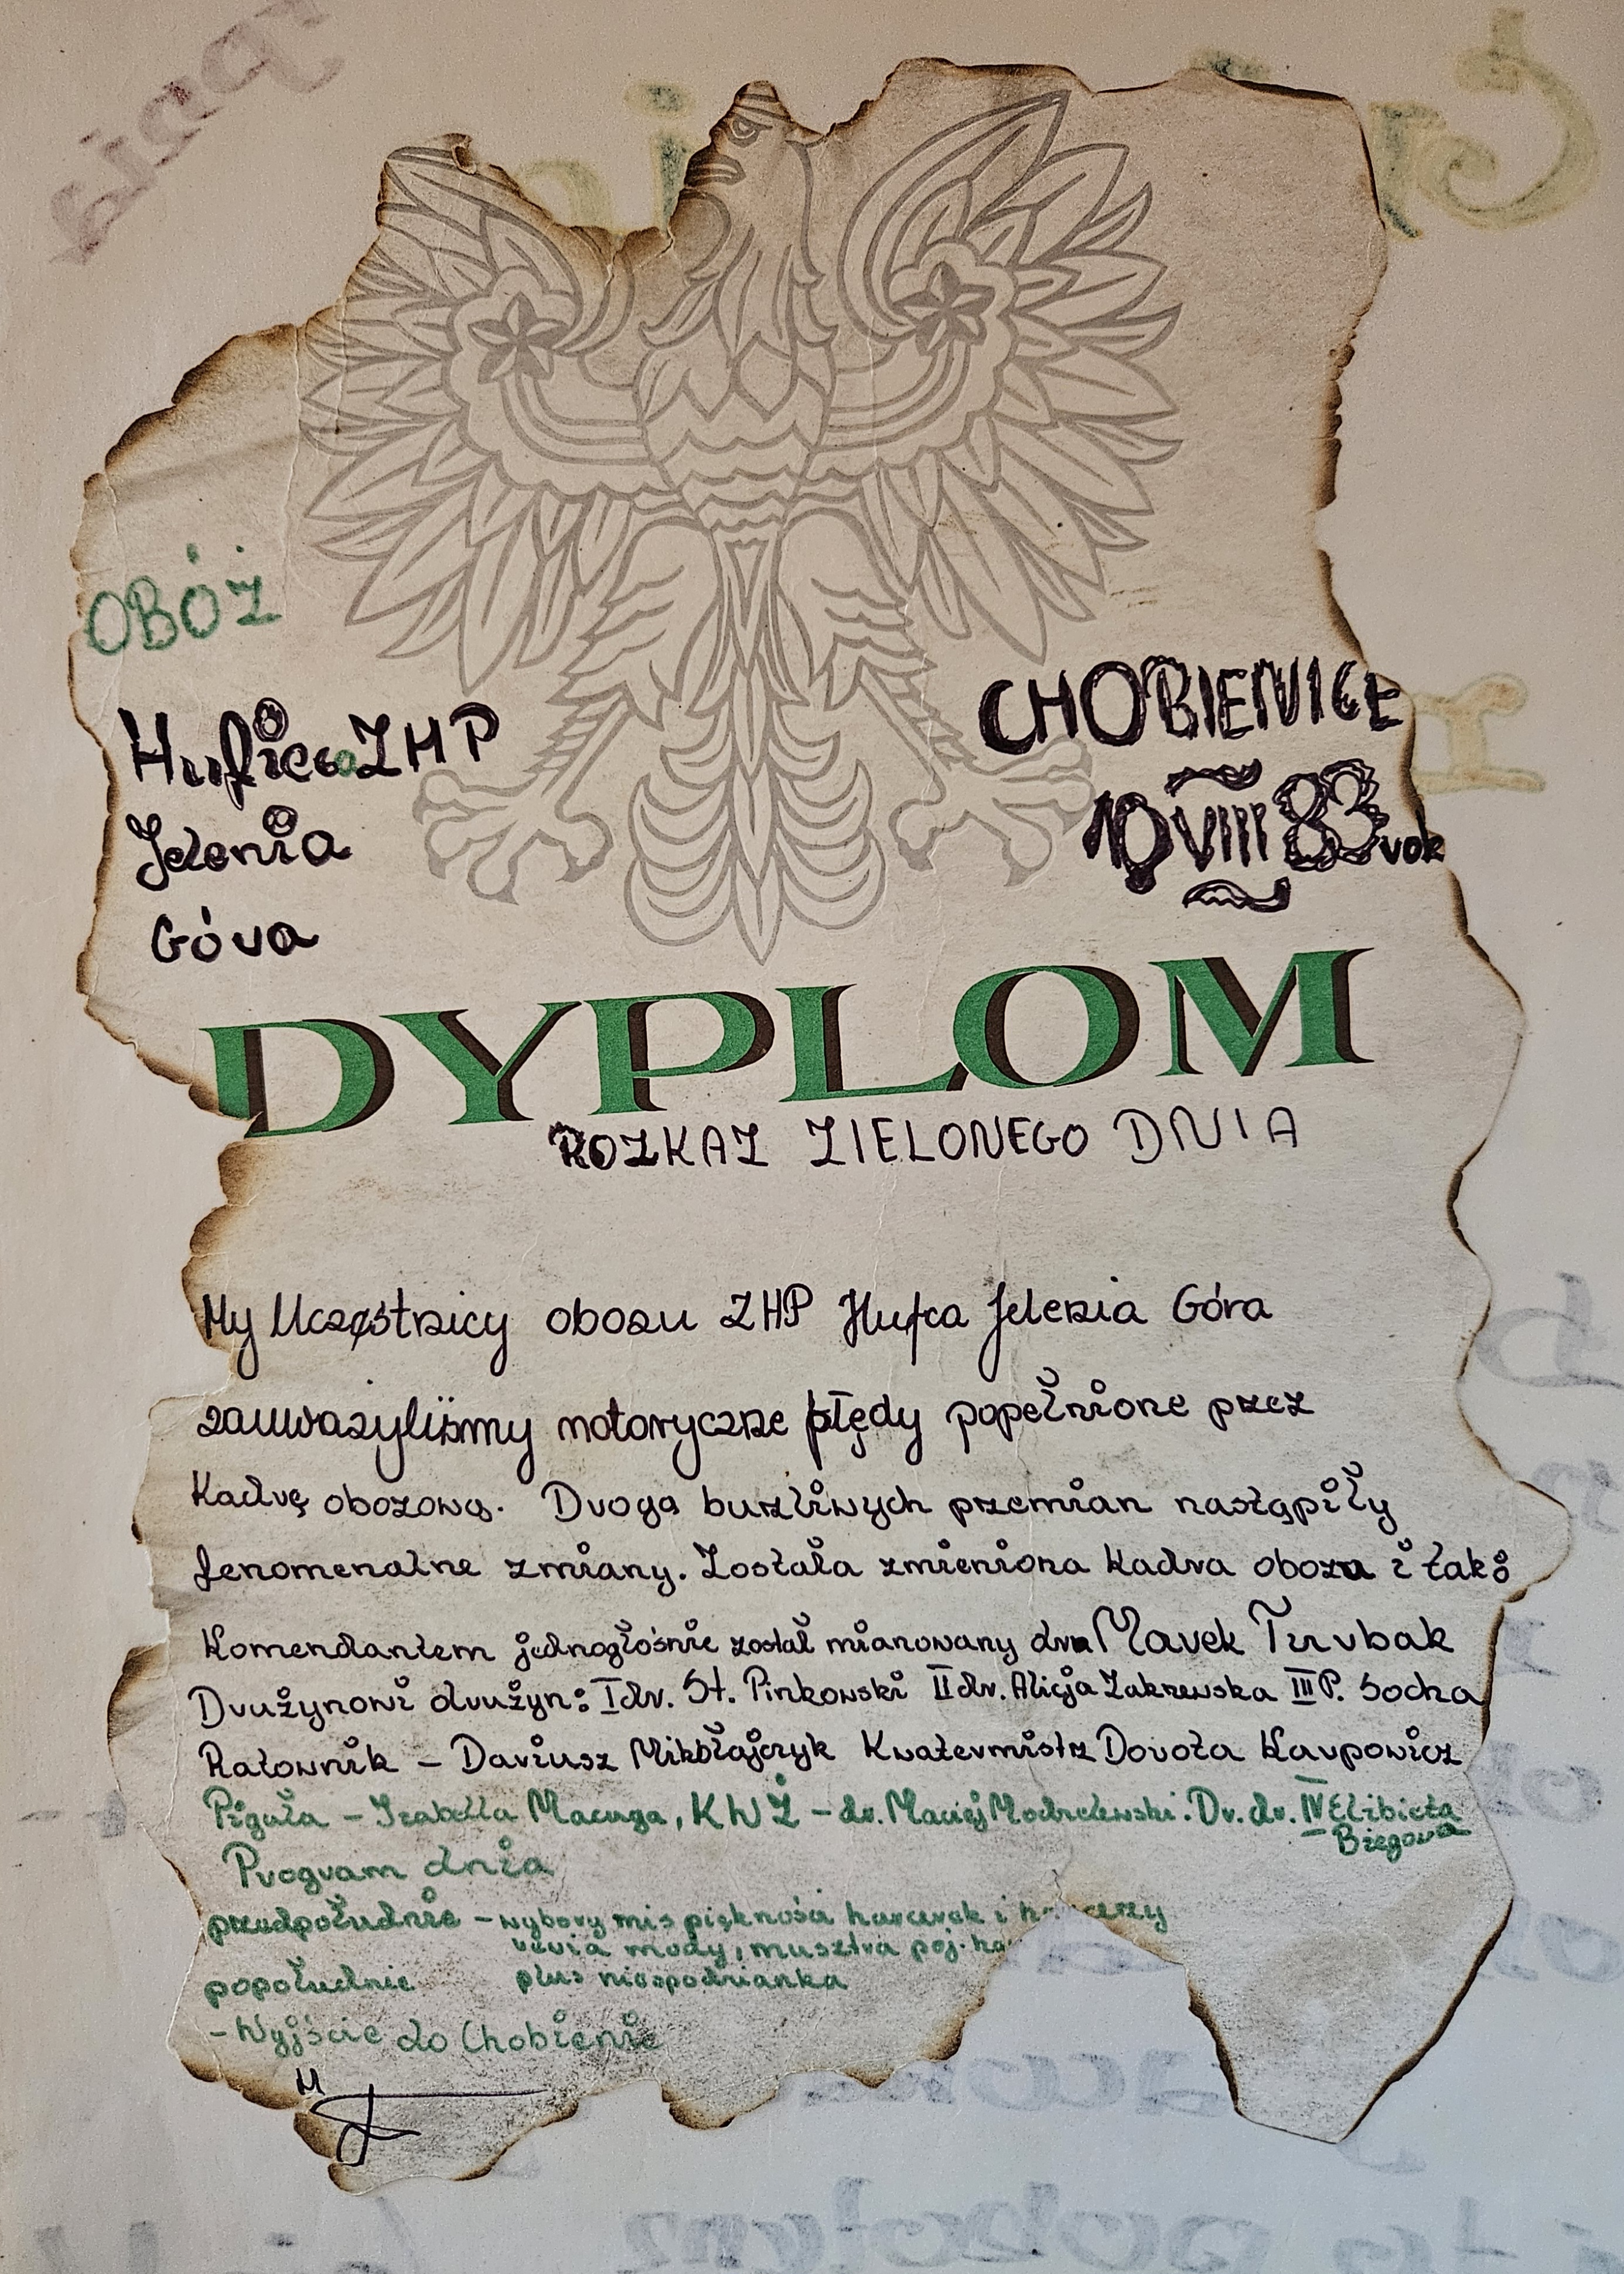 OBÓZ
Hufiec ZHP
Jelenia
Góra
CHOBIENICE
10 VIII 83 rok
DYPLOM
ROZKAZ ZIELONEGO DNIA
My Uczęstnicy obozu ZHP Hufca Jelenia Góra
zauważyliśmy notoryczne błędy popełnione przez
Kadrę obozową. Drogą burzliwych przemian nastąpiły
fenomenalne zmiany. Została zmieniona Kadra obozu i tak:
Komendantem jednogłośnie został mianowany dra Marek Turbak
Drużynowi drużyn: I dr. St. Pinkowski II dr. Alicja Zakrzewska III P. Socha
Ratownik - Dariusz Mikołajczyk Kwatermistrz Dorota Karpowicz
Piguła - Izabella Macuga, KWŻ - dr. Maciej Modrelewski. Dr. dr. IV Elżbieta
Biegowa
Program dnia
przedpołudnie - wybory mis piękności harcerek i harcerzy
rewia mody, musztra poj.
popołudnie plus niespodzianka
- Wyjście do Chobienic